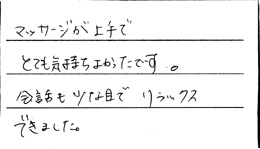 マッサージが上手で
とても気持ちよかったです。
会話も少な目で リラックス
できました。